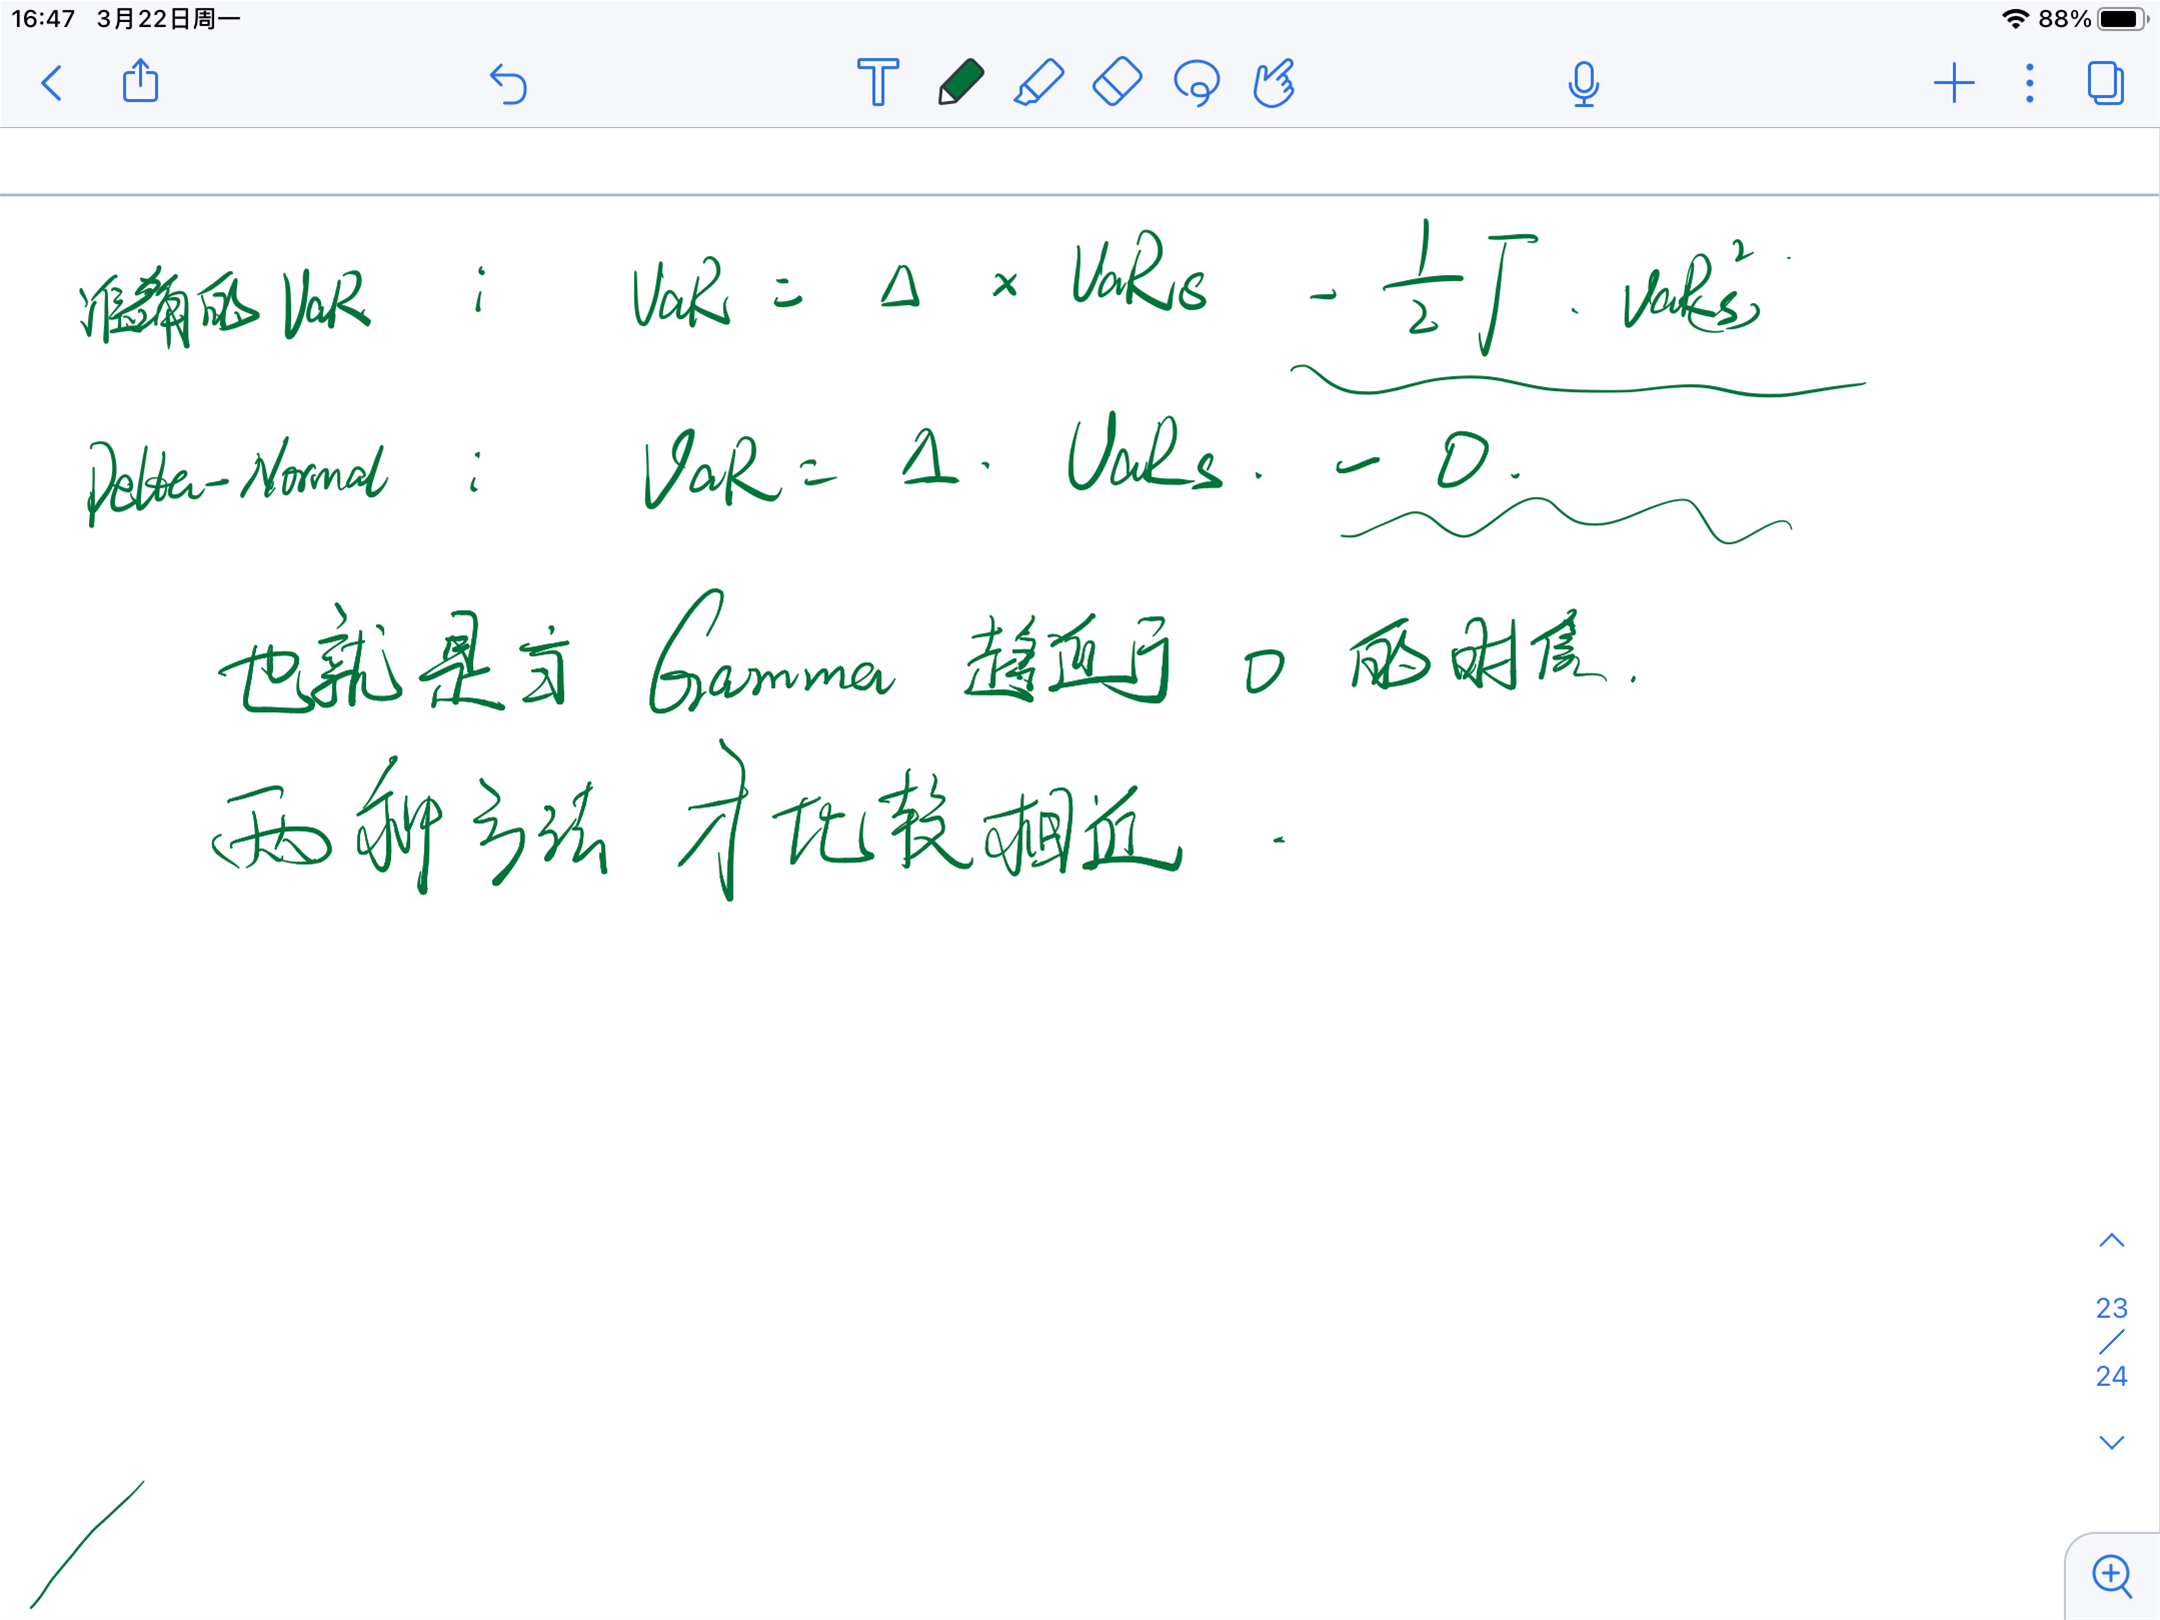 16:47 3月22日周一 88%
准确的VaR : VaR = Δ × VaRs - 1/2 Γ · VaRs²
Delta-Normal : VaR = Δ · VaRs. - 0.
也就是言 Gamma 趋近于 0 的时候.
两种方法 才比较相近.
23
/
24